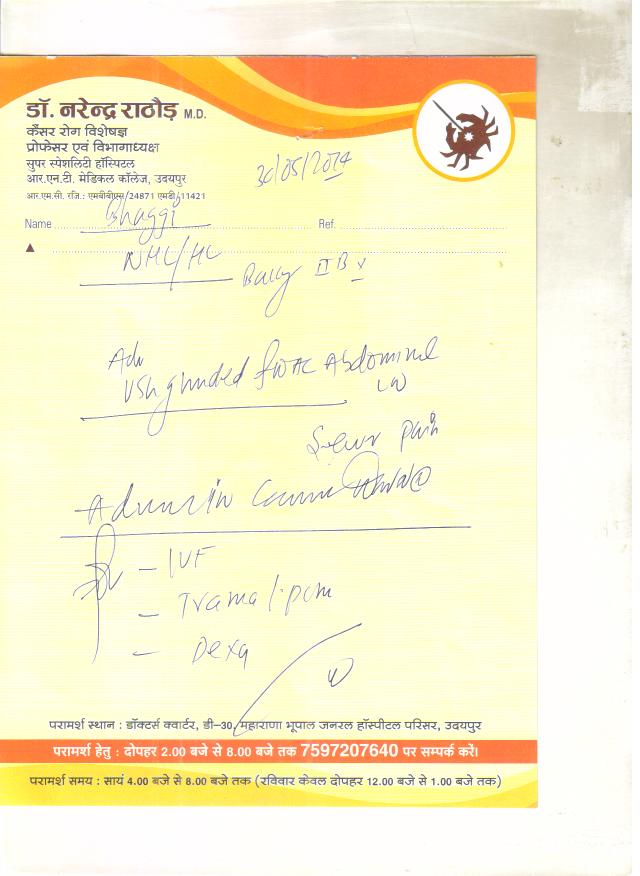 डॉ. नरेन्द्र राठौड़ M.D.
कैंसर रोग विशेषज्ञ
प्रोफेसर एवं विभागाध्यक्ष
सुपर स्पेशलिटी हॉस्पिटल
आर.एन.टी. मेडिकल कॉलेज, उदयपुर
आर.एम.सी. रजि.: एमबीबीएस/24871 एमडी/11421
30/05/2024
Name Bhaggi Ref.
NHL/HL
II B
Adv
guided FNAC Abdominal
LN
Severe pain
Admit in
- IVF
- Trama/pcm
- Dexa
परामर्श स्थान : डॉक्टर्स क्वार्टर, डी-30, महाराणा भूपाल जनरल हॉस्पीटल परिसर, उदयपुर
परामर्श हेतु : दोपहर 2.00 बजे से 8.00 बजे तक 7597207640 पर सम्पर्क करें।
परामर्श समय : सायं 4.00 बजे से 8.00 बजे तक (रविवार केवल दोपहर 12.00 बजे से 1.00 बजे तक)